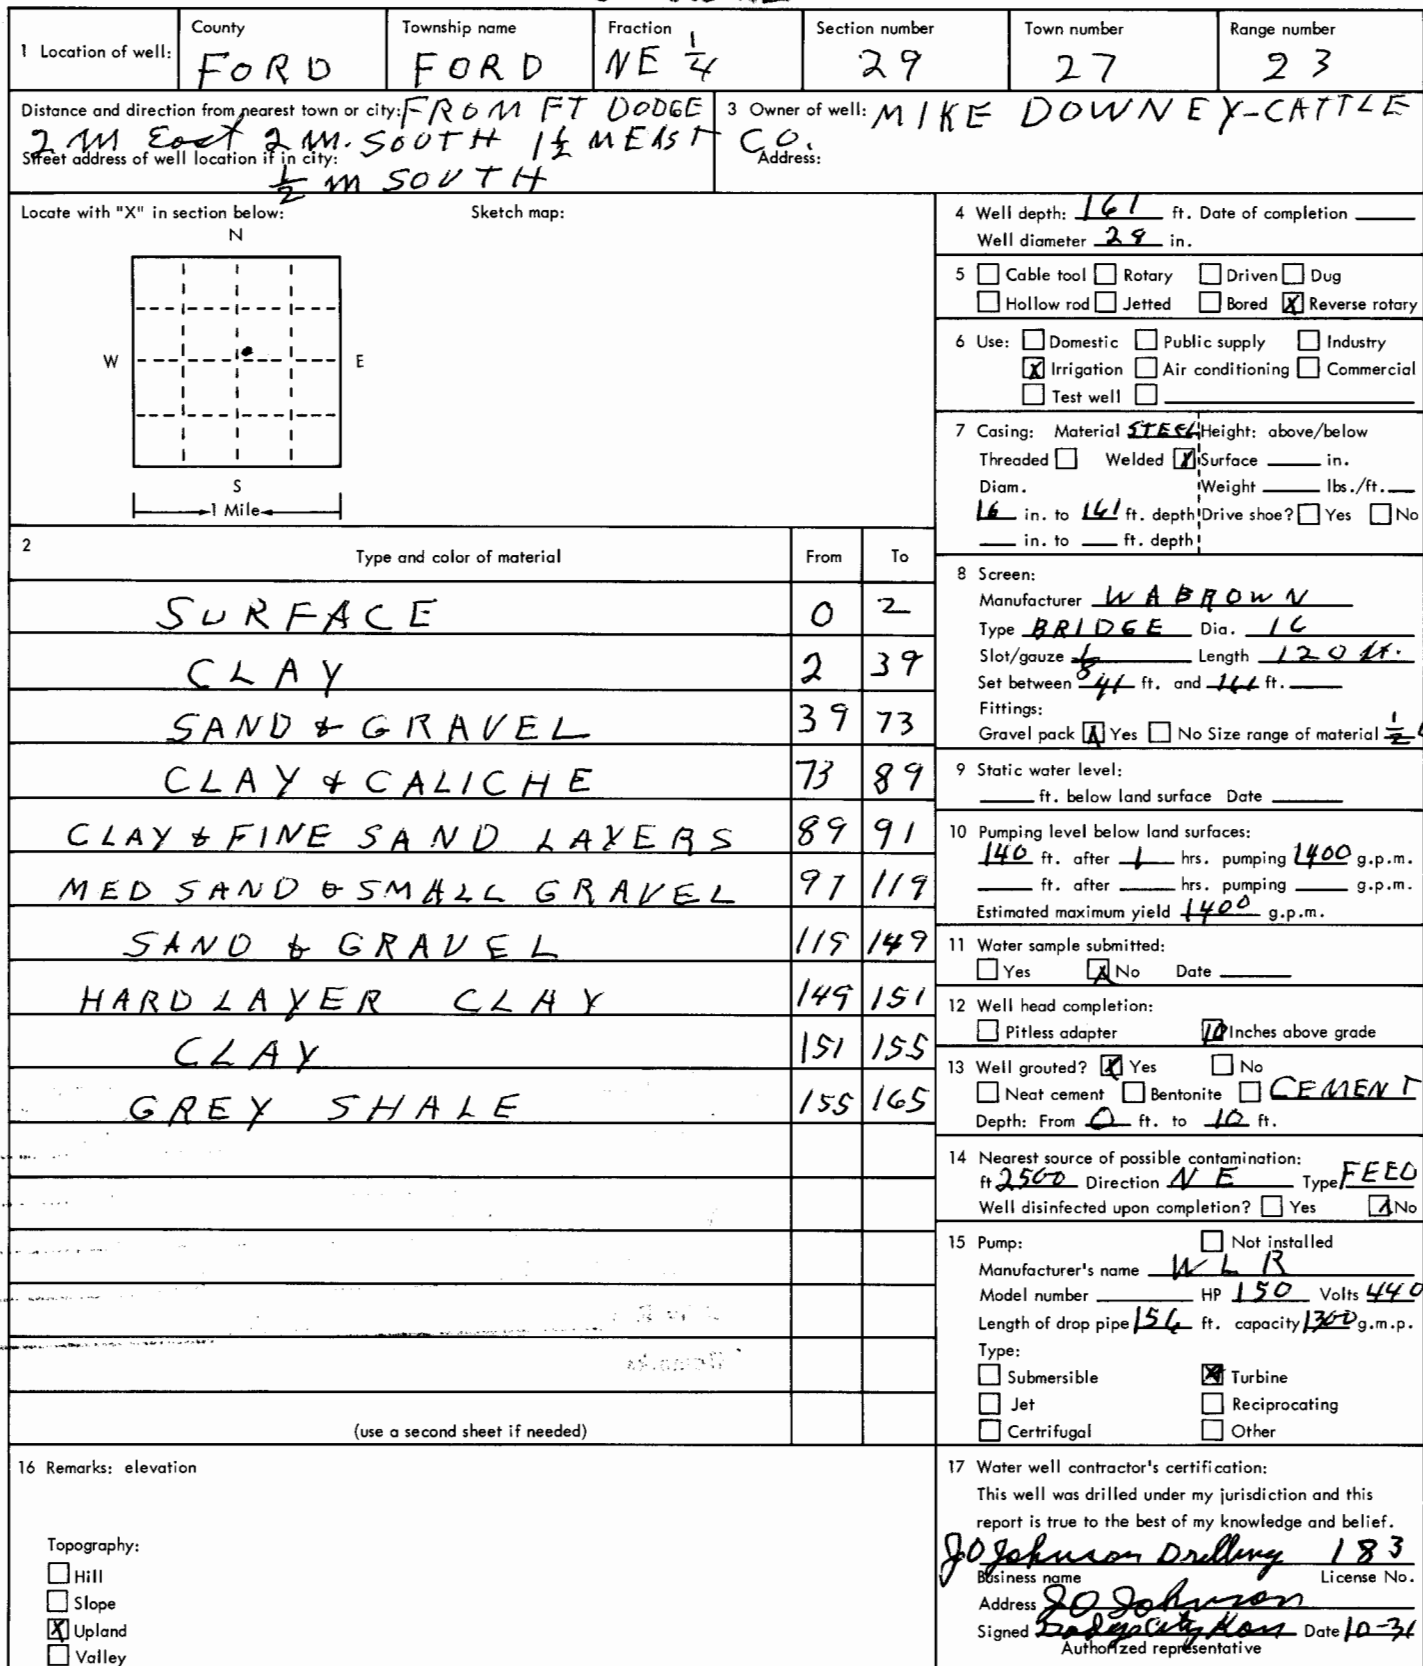 1 Location of well:
County
FORD
Township name
FORD
Fraction
NE 1/4
Section number
29
Town number
27
Range number
23
Distance and direction from nearest town or city: FROM FT DODGE
2 M East 2 M. SOUTH 1½ M EAST
Street address of well location if in city:
½ M SOUTH
3 Owner of well: MIKE DOWNEY-CATTLE
CO.
Address:
Locate with "X" in section below:
Sketch map:
N
W
E
S
1 Mile
2
Type and color of material
From
To
SURFACE 0 2
CLAY 2 39
SAND & GRAVEL 39 73
CLAY & CALICHE 73 89
CLAY & FINE SAND LAYERS 89 91
MED SAND & SMALL GRAVEL 97 119
SAND & GRAVEL 119 149
HARD LAYER CLAY 149 151
CLAY 151 155
GREY SHALE 155 165
(use a second sheet if needed)
4 Well depth: 161 ft. Date of completion
Well diameter 29 in.
5 Cable tool Rotary Driven Dug
Hollow rod Jetted Bored X Reverse rotary
6 Use: Domestic Public supply Industry
X Irrigation Air conditioning Commercial
Test well
7 Casing: Material STEEL Height: above/below
Threaded Welded X Surface in.
Diam. Weight lbs./ft.
16 in. to 161 ft. depth Drive shoe? Yes No
in. to ft. depth
8 Screen:
Manufacturer WA BROWN
Type BRIDGE Dia. 16
Slot/gauze 1/8 Length 120 ft.
Set between 41 ft. and 161 ft.
Fittings:
Gravel pack X Yes No Size range of material 1/2
9 Static water level:
ft. below land surface Date
10 Pumping level below land surfaces:
140 ft. after 1 hrs. pumping 1400 g.p.m.
ft. after hrs. pumping g.p.m.
Estimated maximum yield 1400 g.p.m.
11 Water sample submitted:
Yes X No Date
12 Well head completion:
Pitless adapter 10 Inches above grade
13 Well grouted? X Yes No
Neat cement Bentonite CEMENT
Depth: From 0 ft. to 10 ft.
14 Nearest source of possible contamination:
ft 2500 Direction N E Type FEED
Well disinfected upon completion? Yes X No
15 Pump: Not installed
Manufacturer's name W L R
Model number HP 150 Volts 440
Length of drop pipe 156 ft. capacity 1300 g.m.p.
Type:
Submersible X Turbine
Jet Reciprocating
Certrifugal Other
16 Remarks: elevation
Topography:
Hill
Slope
X Upland
Valley
17 Water well contractor's certification:
This well was drilled under my jurisdiction and this
report is true to the best of my knowledge and belief.
JO Johnson Drilling 183
Business name License No.
Address JO Johnson
Signed Dodge City Kans Date 10-31
Authorized representative